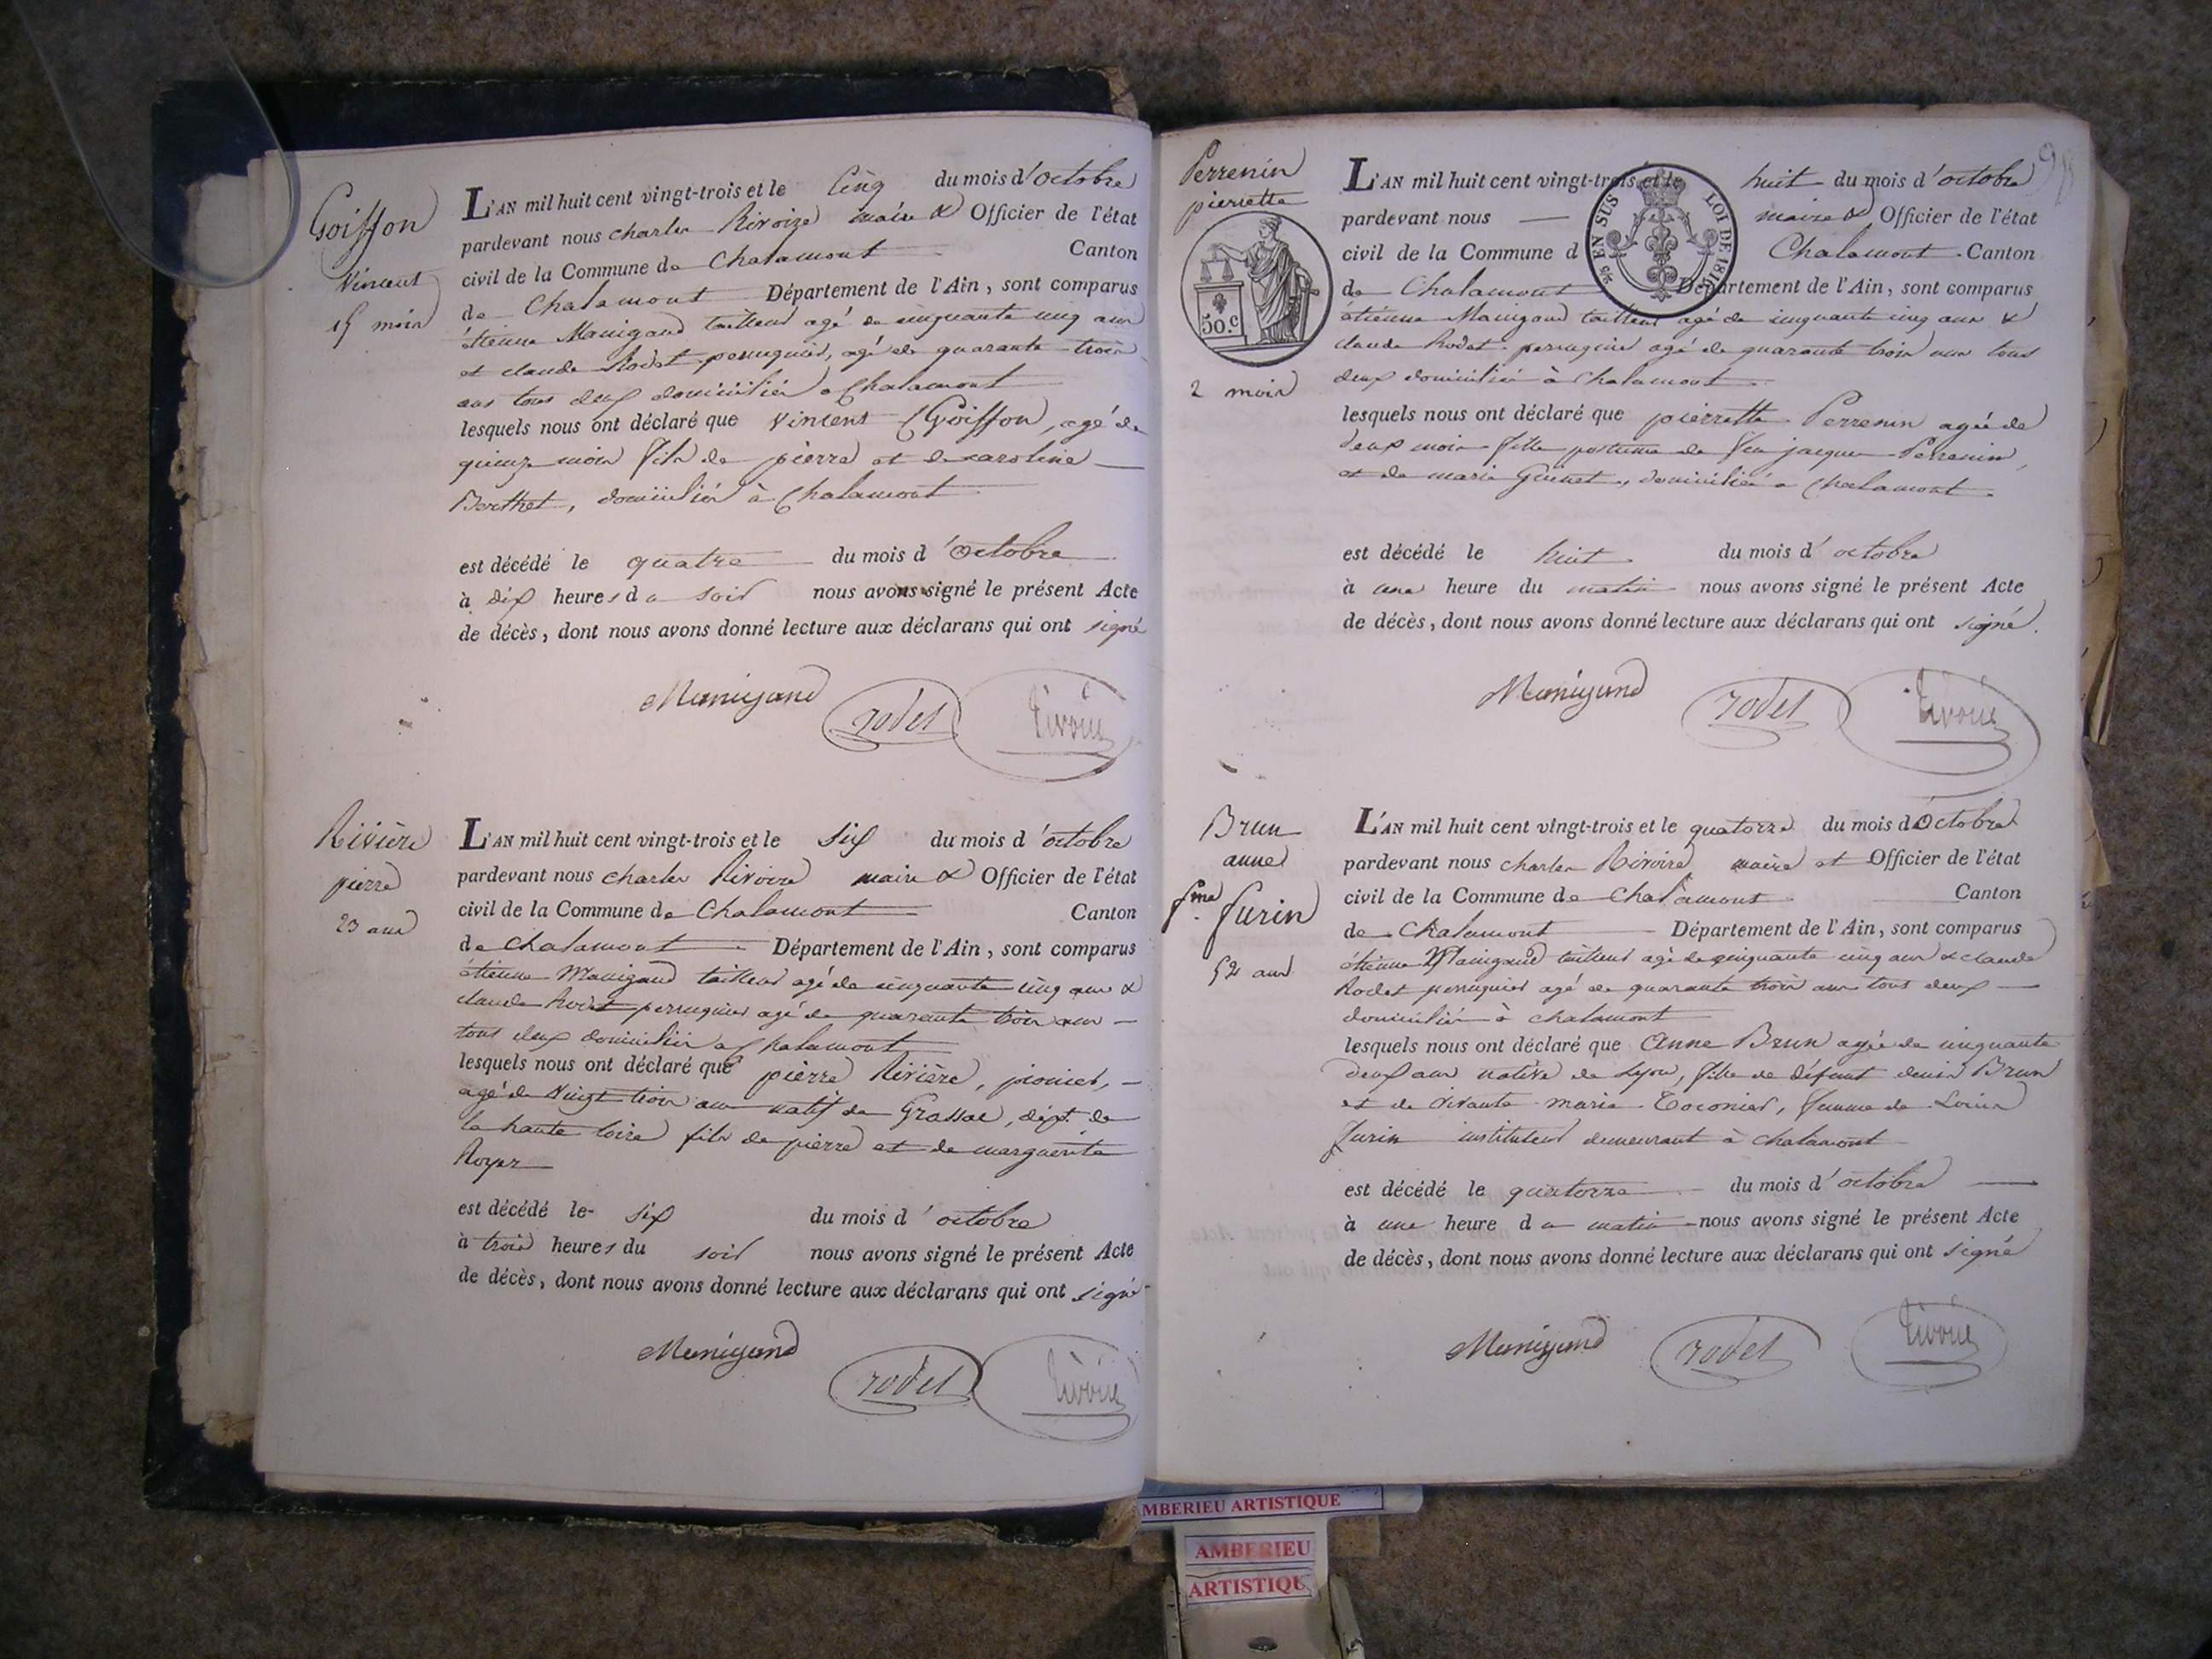 Goiffon
Vincent
15 mois
L'AN mil huit cent vingt-trois et le Cinq du mois d'octobre
pardevant nous charles Rivoire maire & Officier de l'état
civil de la Commune de Chalamont Canton
de Chalamont Département de l'Ain, sont comparus
étienne Manigand tailleur agé de cinquante cinq ans
et claude Rodet perruquier, agé de quarante trois
ans tous deux domiciliés a Chalamont
lesquels nous ont déclaré que Vincent Goiffon, agé de
quinze mois fils de pierre et de caroline
Berthet, domiciliés à Chalamont
est décédé le quatre du mois d'octobre
à dix heures du soir nous avons signé le présent Acte
de décès, dont nous avons donné lecture aux déclarans qui ont signé
Manigand rodet Rivoire
Rivière
pierre
23 ans
L'AN mil huit cent vingt-trois et le six du mois d'octobre
pardevant nous charles Rivoire maire & Officier de l'état
civil de la Commune de Chalamont Canton
de Chalamont Département de l'Ain, sont comparus
étienne Manigand tailleur agé de cinquante cinq ans &
claude Rodet perruquier agé de quarante trois ans
tous deux domiciliés a Chalamont
lesquels nous ont déclaré que pierre Rivière,
agé de vingt trois ans natif de Grassac, dépt. de
la haute loire fils de pierre et de marguerite
Royer
est décédé le six du mois d'octobre
à trois heures du soir nous avons signé le présent Acte
de décès, dont nous avons donné lecture aux déclarans qui ont signé
Manigand rodet Rivoire
Perrenin
pierrette
50.c
2 mois
EN SUS LOI DE 1816
L'AN mil huit cent vingt-trois et le huit du mois d'octobre
pardevant nous maire & Officier de l'état
civil de la Commune d Chalamont Canton
de Chalamont Département de l'Ain, sont comparus
étienne Manigand tailleur agé de cinquante cinq ans &
claude Rodet perruquier agé de quarante trois ans tous
deux domiciliés à Chalamont
lesquels nous ont déclaré que pierrette Perrenin agée de
deux mois fille postume de feu jacques Perrenin
et de marie Guinet, domiciliée a Chalamont
est décédé le huit du mois d'octobre
à une heure du matin nous avons signé le présent Acte
de décès, dont nous avons donné lecture aux déclarans qui ont signé.
Manigand rodet Rivoire
Brun
anne
fme Jurin
52 ans
L'AN mil huit cent vingt-trois et le quatorze du mois d'Octobre
pardevant nous charles Rivoire maire et Officier de l'état
civil de la Commune de Chalamont Canton
de Chalamont Département de l'Ain, sont comparus
étienne Manigand tailleur agé de cinquante cinq ans & claude
Rodet perruquier agé de quarante trois ans tous deux
domiciliés à chalamont
lesquels nous ont déclaré que Anne Brun agée de cinquante
deux ans native de Lyon, fille de défunt denis Brun
et de vivante marie Coconier, femme de Louis
Jurin instituteur demeurant à chalamont
est décédé le quatorze du mois d'octobre
à une heure du matin nous avons signé le présent Acte
de décès, dont nous avons donné lecture aux déclarans qui ont signé
Manigand rodet Rivoire
AMBERIEU ARTISTIQUE
AMBERIEU
ARTISTIQU